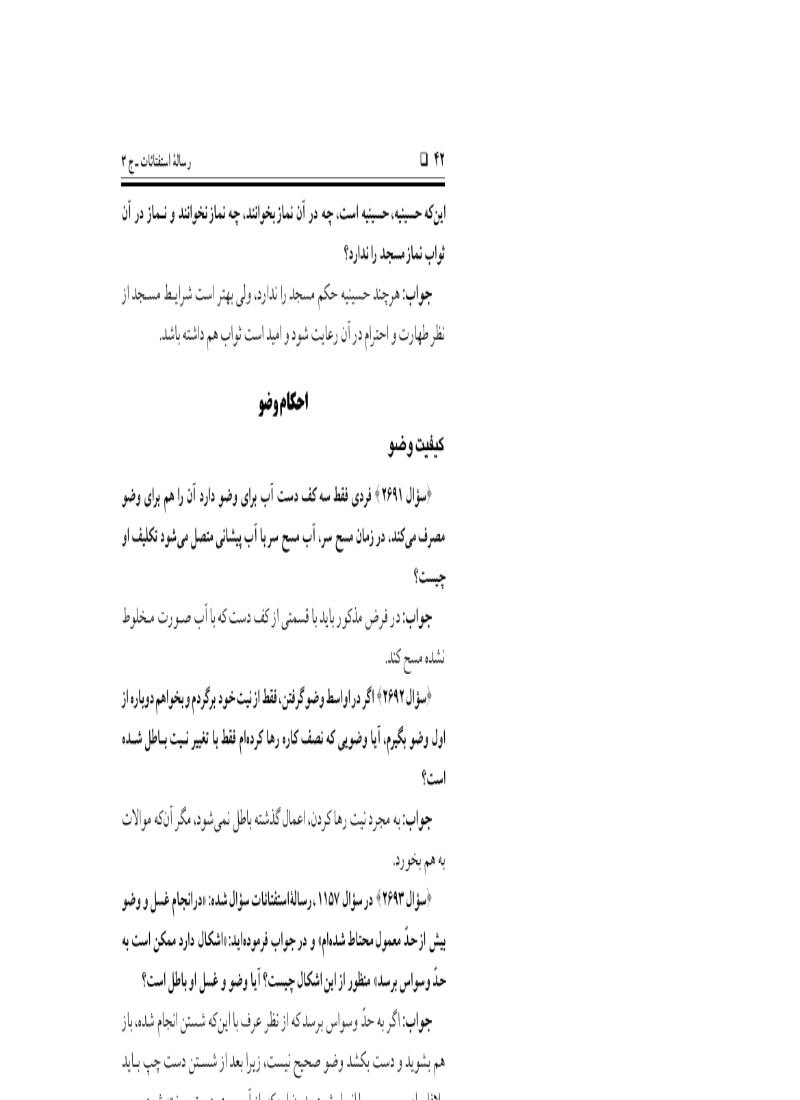 ۴۲ ❑ رسالهٔ استفتائات ـ ج ۳
این‌که حسینیه، حسینیه است، چه در آن نماز بخوانند، چه نماز نخوانند و نماز در آن
ثواب نماز مسجد را ندارد؟
جواب: هرچند حسینیه حکم مسجد را ندارد، ولی بهتر است شرایط مسجد از
نظر طهارت و احترام در آن رعایت شود و امید است ثواب هم داشته باشد.
احکام وضو
کیفیت وضو
﴿سؤال ۲۶۹۱﴾ فردی فقط سه کف دست آب برای وضو دارد آن را هم برای وضو
مصرف می‌کند، در زمان مسح سر، آب مسح سر با آب پیشانی متصل می‌شود تکلیف او
چیست؟
جواب: در فرض مذکور باید با قسمتی از کف دست که با آب صورت مخلوط
نشده مسح کند.
﴿سؤال ۲۶۹۲﴾ اگر در اواسط وضو گرفتن، فقط از نیت خود برگردم و بخواهم دوباره از
اول وضو بگیرم، آیا وضویی که نصف کاره رها کرده‌ام فقط با تغییر نیت باطل شده
است؟
جواب: به مجرد نیت رها کردن، اعمال گذشته باطل نمی‌شود، مگر آن‌که موالات
به هم بخورد.
﴿سؤال ۲۶۹۳﴾ در سؤال ۱۱۵۷، رسالهٔ استفتائات سؤال شده: «در انجام غسل و وضو
بیش از حدّ معمول محتاط شده‌ام» و در جواب فرموده‌اید: «اشکال دارد ممکن است به
حدّ وسواس برسد» منظور از این اشکال چیست؟ آیا وضو و غسل او باطل است؟
جواب: اگر به حدّ وسواس برسد که از نظر عرف با این‌که شستن انجام شده، باز
هم بشوید و دست بکشد وضو صحیح نیست، زیرا بعد از شستن دست چپ باید